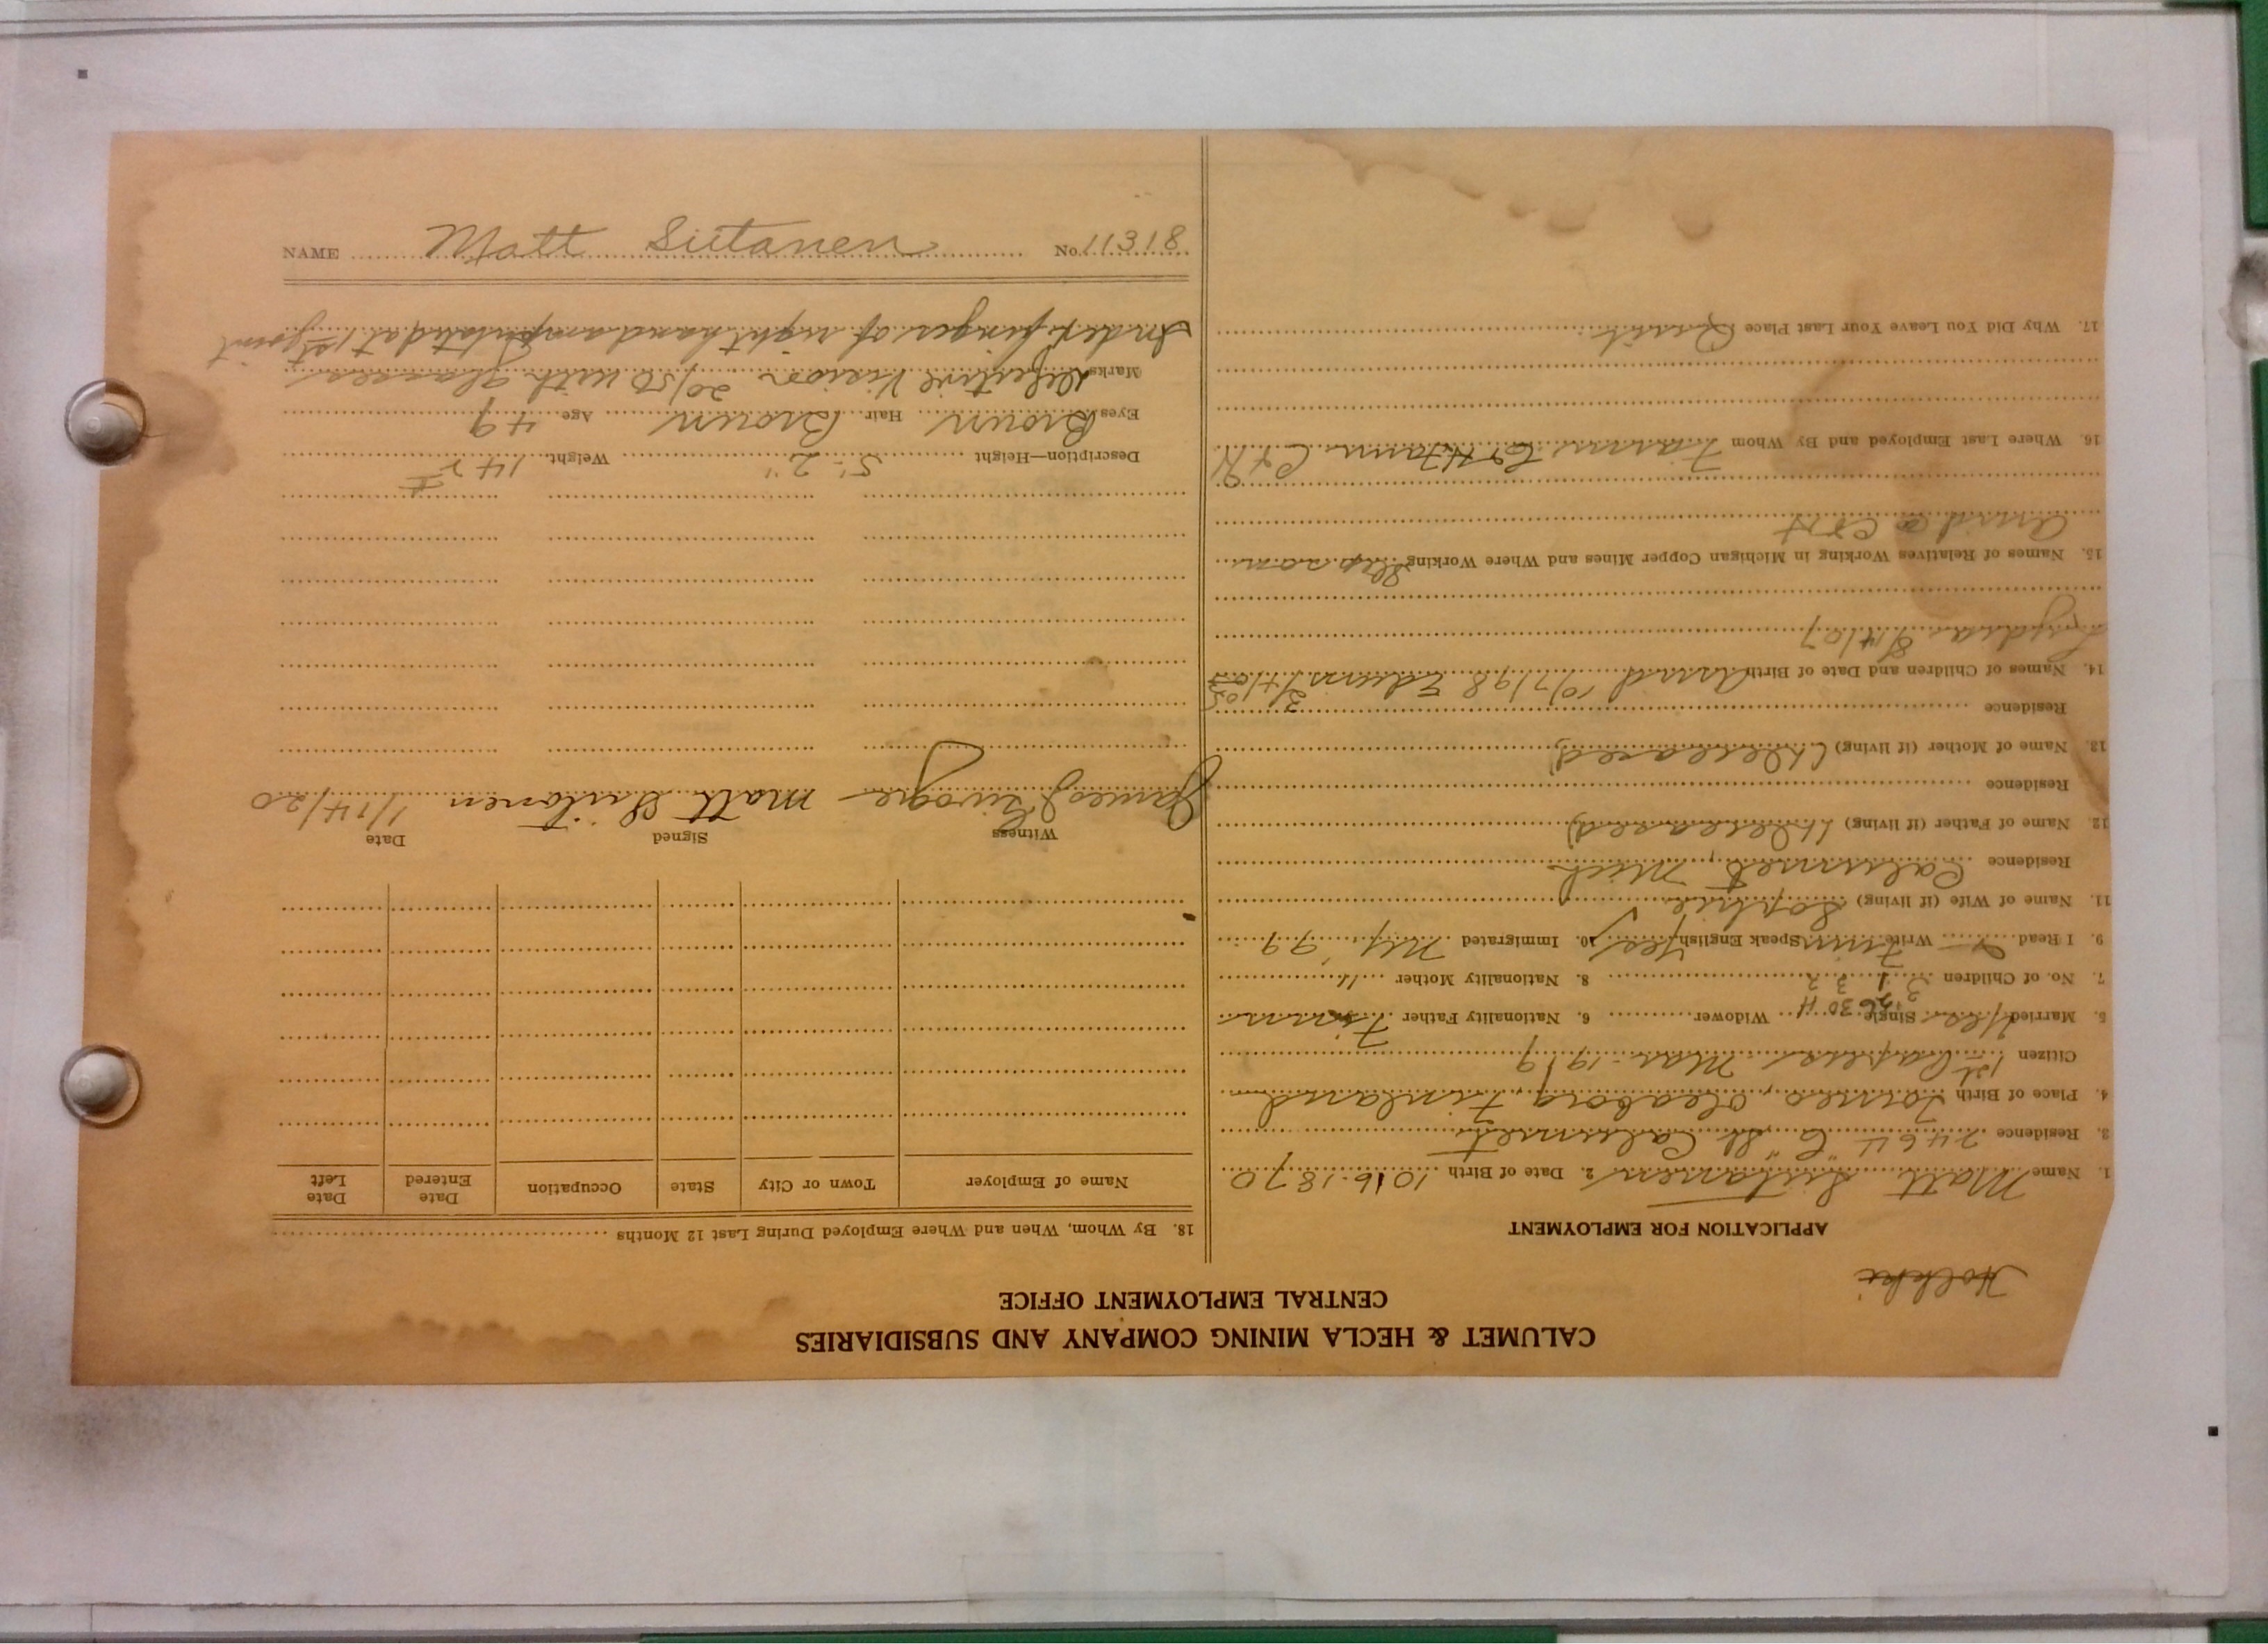 CALUMET & HECLA MINING COMPANY AND SUBSIDIARIES
CENTRAL EMPLOYMENT OFFICE
Holkki
APPLICATION FOR EMPLOYMENT
1. Name Matt Siitanen 2. Date of Birth 10-16-1870
3. Residence 2464 "C" St Calumet
4. Place of Birth Torneo, Oleaborg, Finland
Citizen 1st Papers Mar-1919
5. Married Yes Single Widower 6. Nationality Father Finn
7. No. of Children 3 8. Nationality Mother "
9. I Read Write Finn Speak English Yes 10. Immigrated My '99
11. Name of Wife (if living) Sophie
Residence Calumet, Mich
12. Name of Father (if living) (Deceased)
Residence
13. Name of Mother (if living) (Deceased)
Residence
14. Names of Children and Date of Birth Arvid 10/7/98 Edwin 3/4/05
Lydia 8/4/07
15. Names of Relatives Working in Michigan Copper Mines and Where Working Step son
Arvid @ C & H
16. Where Last Employed and By Whom Farm C & H
17. Why Did You Leave Your Last Place Quit
18. By Whom, When and Where Employed During Last 12 Months
Name of Employer Town or City State Occupation Date Entered Date Left
Witness Signed Date
James Matt Siitonen 1/14/20
Description—Height 5'-2" Weight 142 #
Eyes Brown Hair Brown Age 49
Marks Defective Vision 20/50 with glasses
Index finger of right hand amputated at 1st joint
NAME Matt Siitanen No. 11318